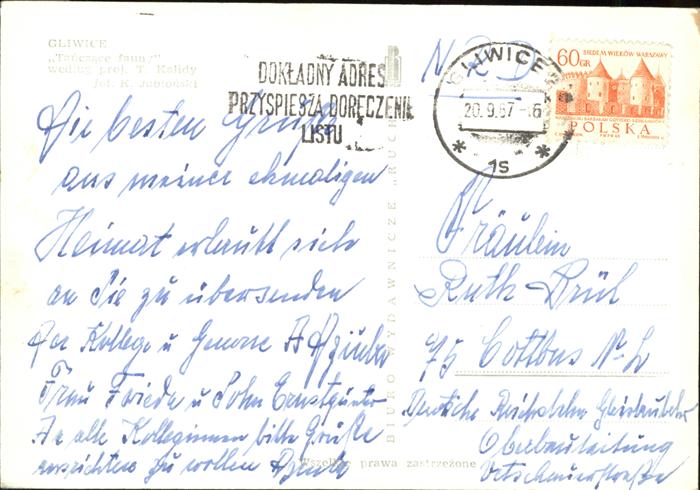 GLIWICE
„Tańczące fauny"
według proj. T. Kalidy
fot. K. Jabłoński
DOKŁADNY ADRES
PRZYSPIESZA DORĘCZENIE
LISTU
NRD
GLIWICE
20.9.67
1s
60 GR
SIEDEM WIEKÓW WARSZAWY
POLSKA
Die besten Grüße
aus meiner ehmaligen
Heimat erlaubt sich
an Sie zu übersenden
Der Kollege u Genosse A
Frau Frieda u Sohn Ernstgünter
An alle Kolleginnen bitte Grüße
ausrichten zu wollen
BIURO WYDAWNICZE „RUCH"
Wszelkie prawa zastrzeżone
Fräulein
Ruth Brül
75 Cottbus
Deutsche Reichsbahn
Oberbauleitung
Vetschauerstraße